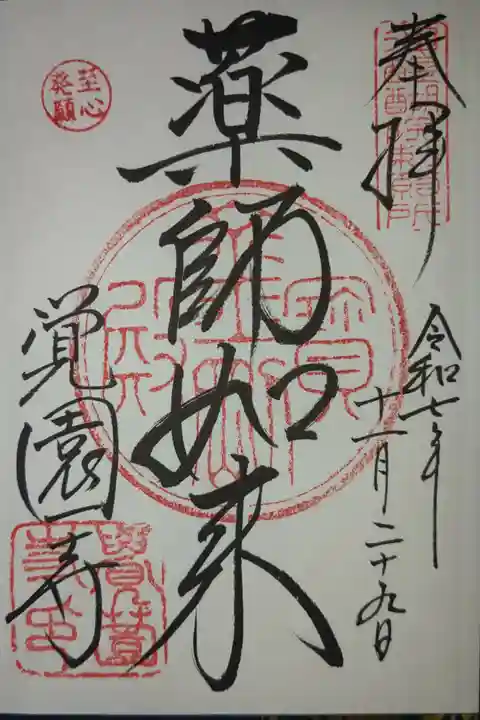 奉拝
令和七年
十一月二十九日
薬師如来
覚園寺
至心
発願